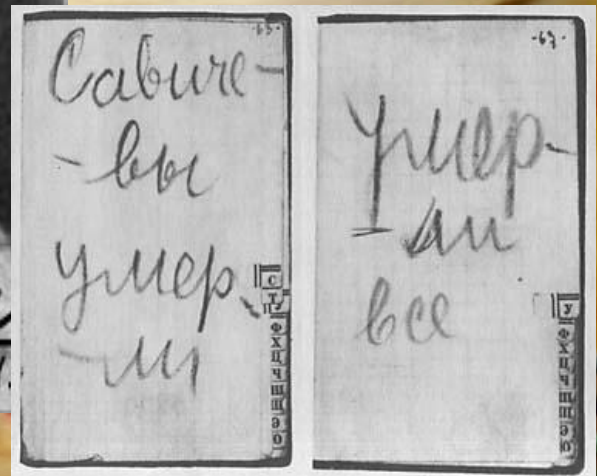 -65-
Савиче-
-вы
умер-
-ли
С
Т
У
Ф
Х
Ц
Ч
Ш
Щ
Э
-67-
умер-
-ли
все
У
Ф
Х
Ц
Ч
Ш
Щ
Э